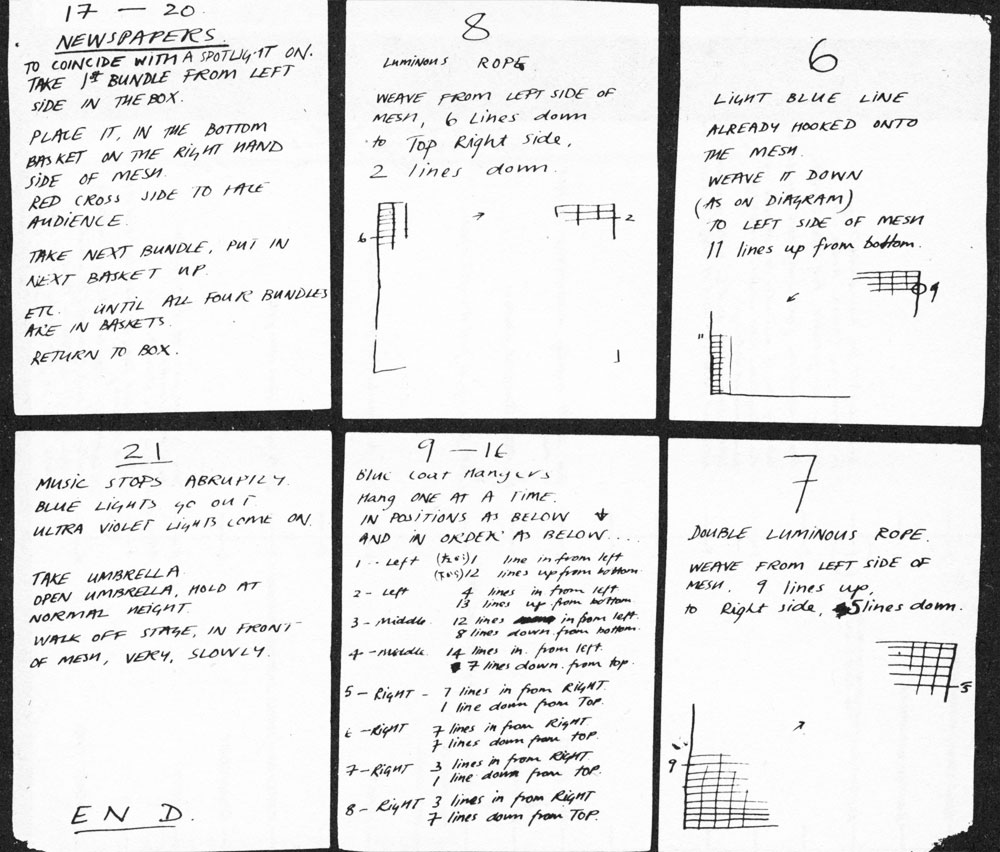 17 — 20
NEWSPAPERS.
TO COINCIDE WITH A SPOTLIGHT ON.
TAKE 1st BUNDLE FROM LEFT
SIDE IN THE BOX.
PLACE IT, IN THE BOTTOM
BASKET ON THE RIGHT HAND
SIDE OF MESH.
RED CROSS SIDE TO FACE
AUDIENCE.
TAKE NEXT BUNDLE, PUT IN
NEXT BASKET UP.
ETC. UNTIL ALL FOUR BUNDLES
ARE IN BASKETS.
RETURN TO BOX.
8
LUMINOUS ROPE
WEAVE FROM LEFT SIDE OF
MESH, 6 Lines down
to Top Right side,
2 lines down.
6
2
6
LIGHT BLUE LINE
ALREADY HOOKED ONTO
THE MESH.
WEAVE IT DOWN
(AS ON DIAGRAM)
TO LEFT SIDE OF MESH
11 lines up from bottom.
9
11
21
MUSIC STOPS ABRUPTLY.
BLUE LIGHTS go OUT.
ULTRA VIOLET LIGHTS COME ON.
TAKE UMBRELLA.
OPEN UMBRELLA, HOLD AT
NORMAL HEIGHT.
WALK OFF STAGE, IN FRONT
OF MESH, VERY, SLOWLY.
END.
9 — 16
Blue Coat Hangers
Hang ONE AT A TIME.
IN POSITIONS AS BELOW ↓
AND IN ORDER AS BELOW....
1 .. Left 1 line in from left
12 lines up from bottom
2 - Left 4 lines in from left
13 lines up from bottom.
3 - Middle. 12 lines in from left.
8 lines down from bottom.
4 - Middle. 14 lines in. from left.
7 lines down. from top.
5 - RIGHT - 7 lines in from RIGHT.
1 line down from TOP.
6 - RIGHT 7 lines in from RIGHT
7 lines down from TOP.
7 - RIGHT 3 lines in from RIGHT.
1 line down from TOP.
8 - RIGHT 3 lines in from RIGHT
7 lines down from TOP.
7
DOUBLE LUMINOUS ROPE.
WEAVE FROM LEFT SIDE OF
MESH. 9 lines up,
to Right side, 5 lines down.
5
9